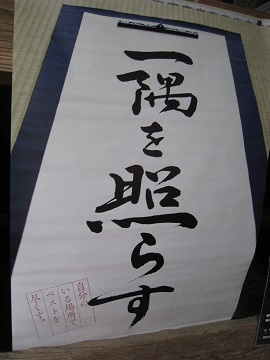 一隅を照らす
自分の
いる場所で、
ベストを
尽くす。